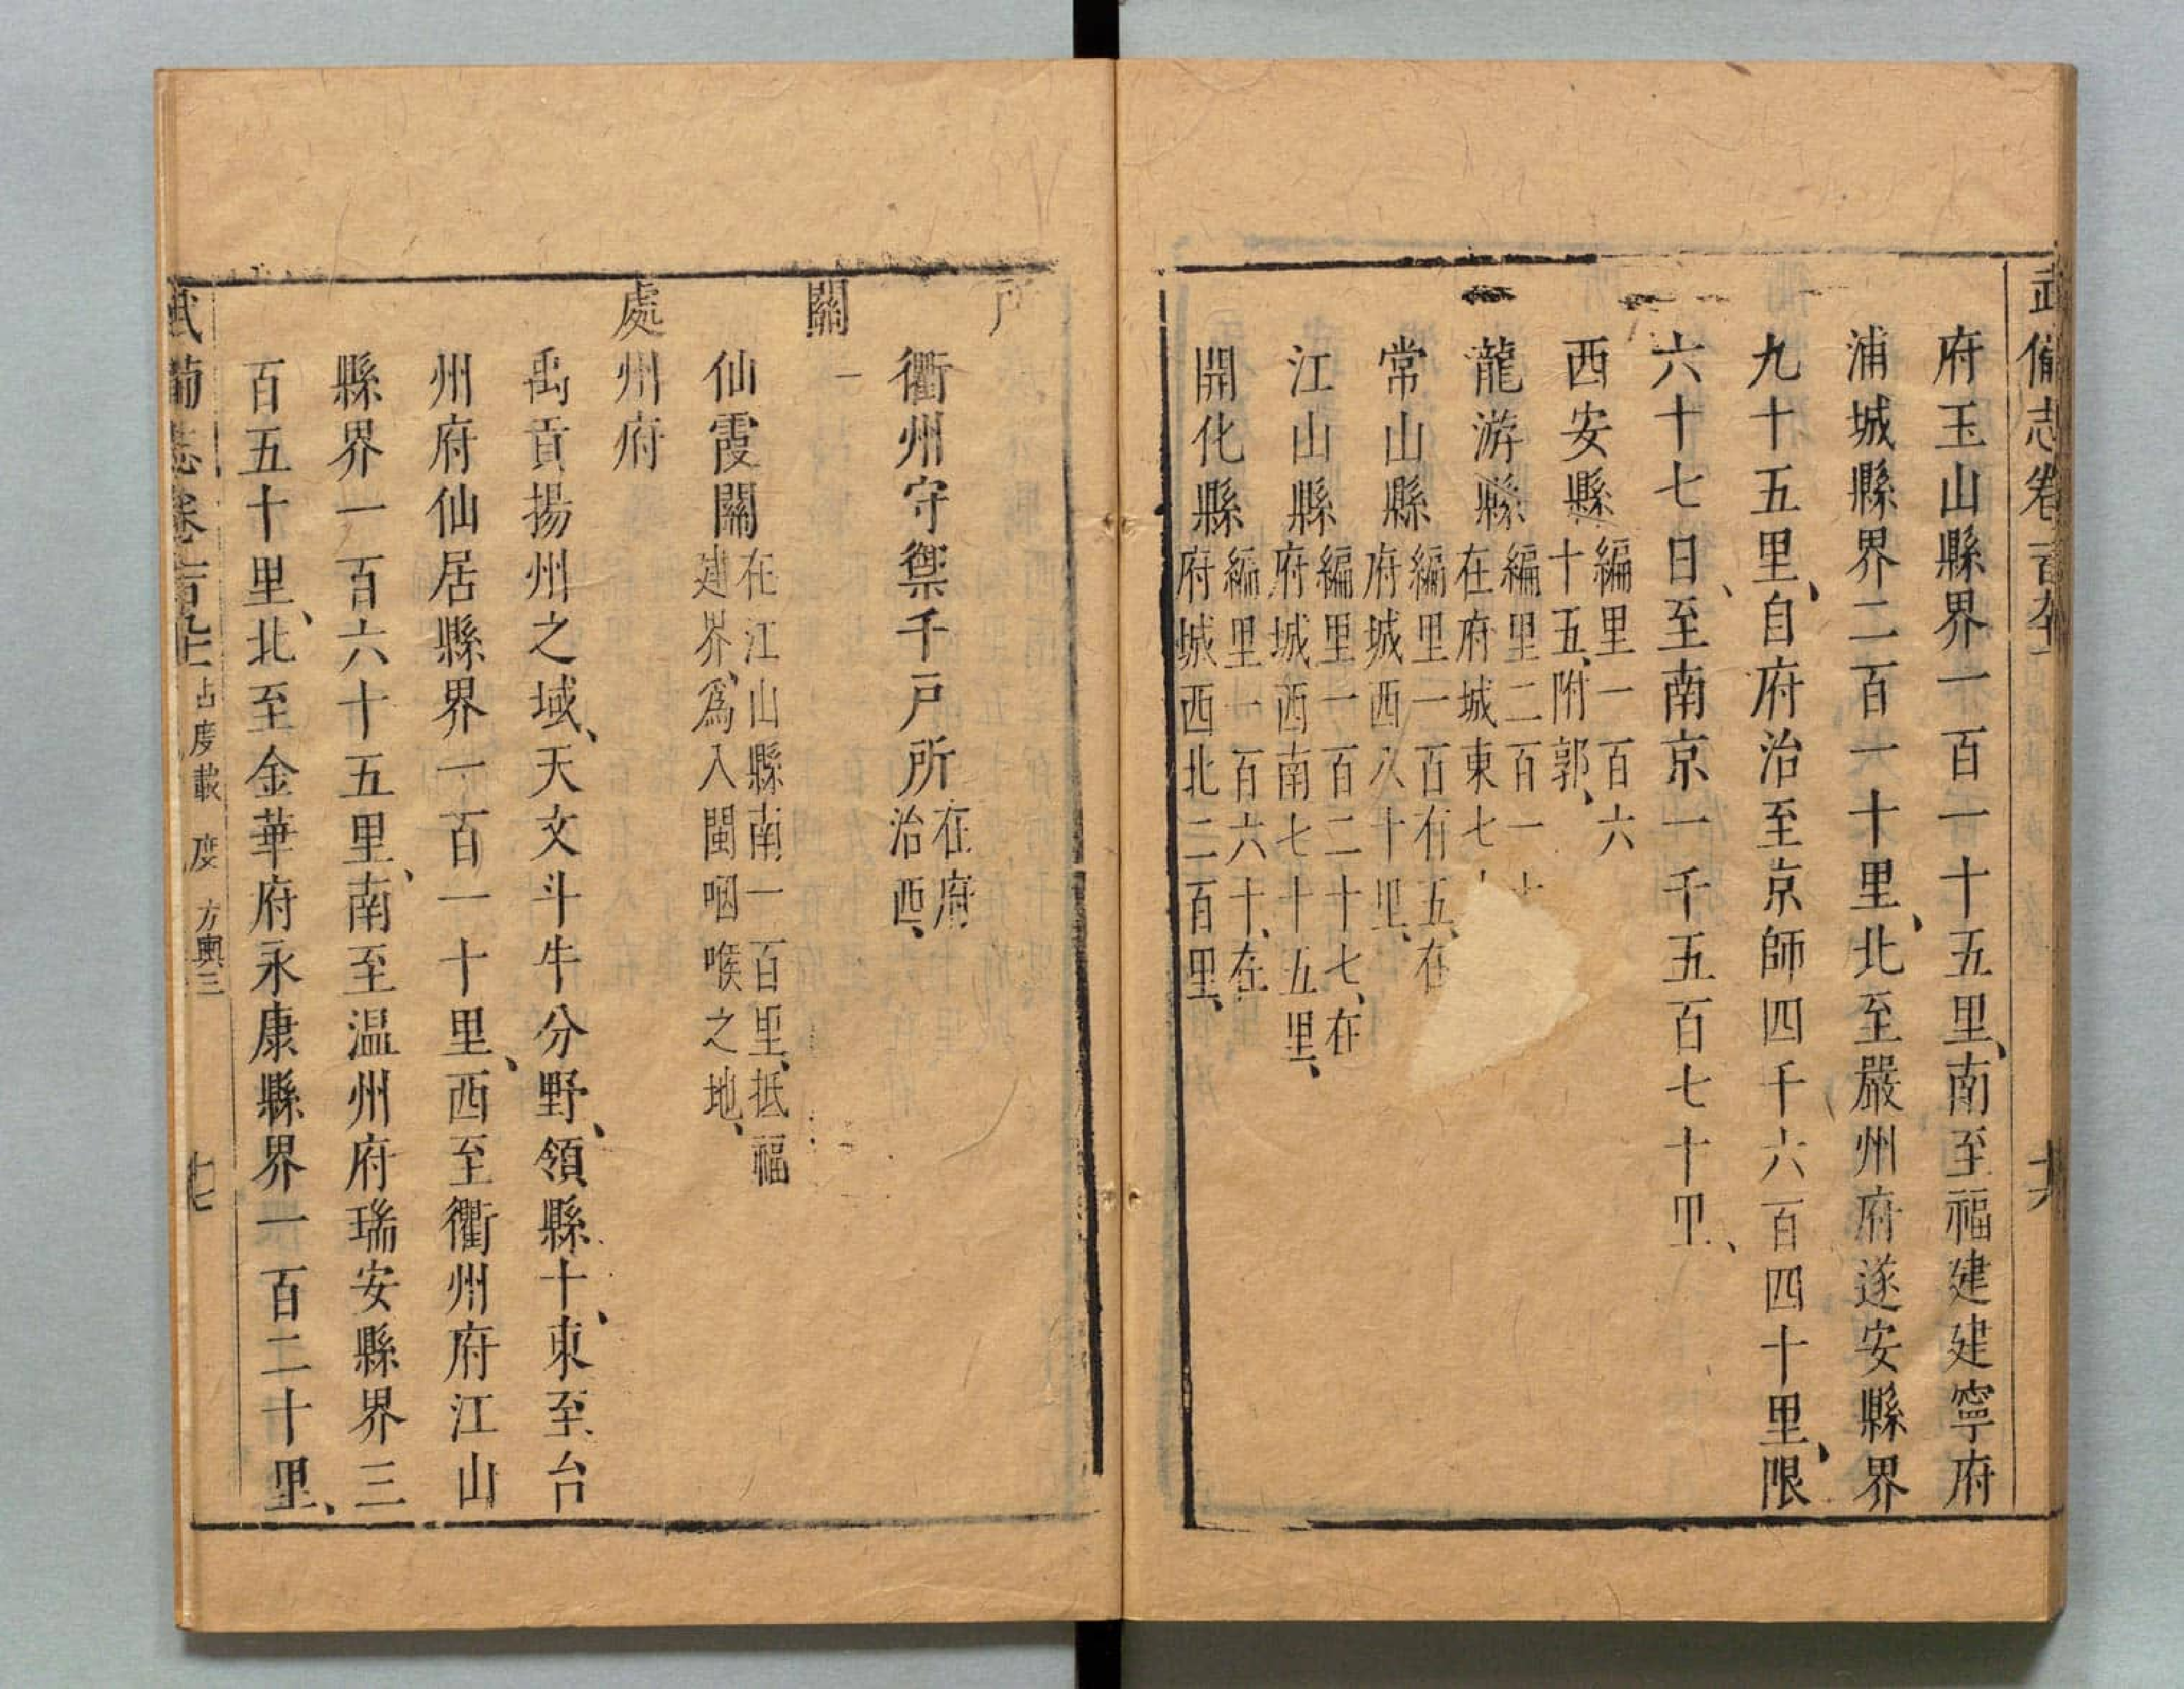 武備志卷
府玉山縣界一百一十五里、南至福建建寧府
浦城縣界二百一十里、北至嚴州府遂安縣界
九十五里、自府治至京師四千六百四十里、限
六十七日、至南京一千五百七十里、
西安縣編里一百六十五、附郭、
龍游縣編里二百一在府城東七
常山縣編里一百有五、在府城西八十里、
江山縣編里一百二十七、在府城西南七十五里、
開化縣編里一百六十、在府城西北二百里、
衢州守禦千戸所在府治西、
關一
仙霞關在江山縣南一百里、抵福建界、爲入閩咽喉之地、
處州府
禹貢揚州之域、天文斗牛分野、領縣十、東至台
州府仙居縣界一百一十里、西至衢州府江山
縣界一百六十五里、南至温州府瑞安縣界三
百五十里、北至金華府永康縣界一百二十里、
武備志卷 占度載 度 方輿三